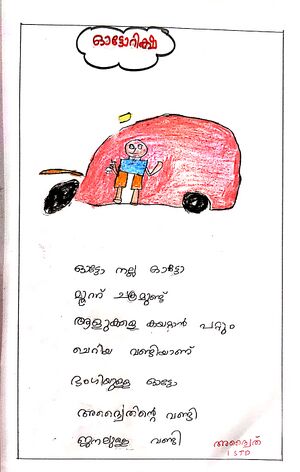 ഓട്ടോറിക്ഷ
ഓട്ടോ നല്ല ഓട്ടോ
മൂന്ന് ചക്രമുണ്ട്
ആളുക്കളെ കയറ്റാൻ പറ്റും
ചെറിയ വണ്ടിയാണ്
ഭംഗിയുള്ള ഓട്ടോ
അദ്വൈതിന്റെ വണ്ടി
ജനലുള്ള വണ്ടി
അദ്വൈത്
1 STD